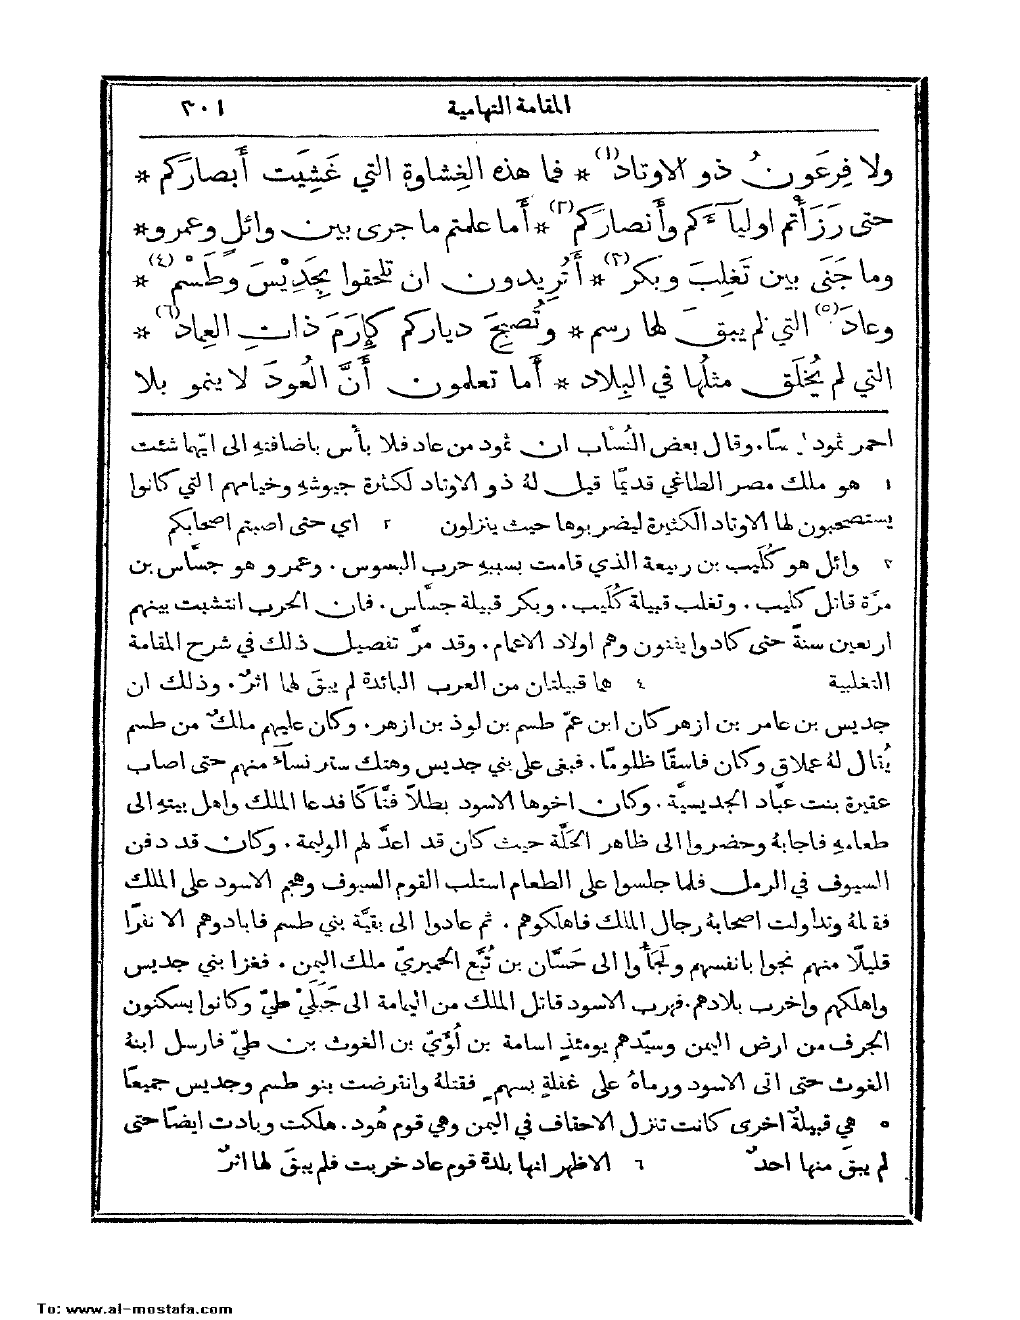 المقامة التهامية ٣٠١
ولا فِرعَونُ ذو الاوتاد(١) * فما هذه الغِشاوة التي غَشِيَت أَبصارَكم *
حتى رَزَأْتم اوليآءَكم وأَنصارَكم(٢) * أَما علمتم ما جرى بين وائلٍ وعمرو *
وما جَنَى بين تَغلِبَ وبكر(٣) * أَتُرِيدون ان تلحقوا بِجَدِيْسَ وطَسْم(٤) *
وعادَ(٥) التي لم يبقَ لها رسم * وتُصبِحَ دياركم كإِرَمَ ذاتِ العِماد(٦) *
التي لم يُخلَق مثلُها في البِلاد * أَما تعلمون أَنَّ العُودَ لا ينمو بلا
احمر ثمود وقال بعض النُسَّاب ان ثمود من عاد فلا بأس باضافتهِ الى ايّهما شئت
١ هو ملك مصر الطاغي قديمًا قيل لهُ ذو الاوتاد لكثرة جيوشهِ وخيامهم التي كانوا
يستصحبون لها الاوتاد الكثيرة ليضربوها حيث ينزلون ٢ اي حتى اصبتم اصحابكم
٣ وائل هو كُلَيب بن ربيعة الذي قامت بسببهِ حرب البسوس. وعمرو هو جسَّاس بن
مرَّة قاتل كليب. وتغلب قبيلة كُلَيب. وبكر قبيلة جسَّاس. فان الحرب انتشبت بينهم
اربعين سنةً حتى كادوا يفنون وهم اولاد الاعمام. وقد مرَّ تفصيل ذلك في شرح المقامة
التغلبية ٤ هما قبيلتان من العرب البائدة لم يبقَ لها اثرٌ. وذلك ان
جديس بن عامر بن ازهر كان ابن عمّ طسم بن لوذ بن ازهر. وكان عليهم ملكٌ من طسم
يُقال لهُ عملاق وكان فاسقًا ظلومًا. فبغى على بني جديس وهتك ستر نسآءٍ منهم حتى اصاب
عفيرة بنت عبَّاد الجديسيَّة. وكان اخوها الاسود بطلًا فتَّاكًا فدعا الملك واهل بيتهِ الى
طعامهِ فاجابهُ وحضروا الى ظاهر الحلَّة حيث كان قد اعدَّ لهم الوليمة. وكان قد دفن
السيوف في الرمل فلما جلسوا على الطعام استلب القوم السيوف وهجم الاسود على الملك
فقتلهُ وتداولت اصحابهُ رجال الملك فاهلكوهم. ثم عادوا الى بقيَّة بني طسم فابادوهم الا نفرًا
قليلًا منهم نجوا بانفسهم ولجأُوا الى حَسَّان بن تُبَّع الحميريّ ملك اليمن. فغزا بني جديس
واهلكهم واخرب بلادهم. فهرب الاسود قاتل الملك من اليمامة الى جَبَلَيْ طيّ وكانوا يسكنون
الجرف من ارض اليمن وسيّدهم يومئذٍ اسامة بن لُؤَيّ بن الغوث بن طيّ فارسل ابنهُ
الغوث حتى اتى الاسود ورماهُ على غفلةٍ بسهمٍ فقتلهُ وانقرضت بنو طسم وجديس جميعًا
٥ هي قبيلةٌ اخرى كانت تنزل الاحقاف في اليمن وهي قوم هُود. هلكت وبادت ايضًا حتى
لم يبقَ منها احدٌ ٦ الاظهر انها بلدة قوم عاد خربت فلم يبقَ لها اثرٌ
To: www.al-mostafa.com